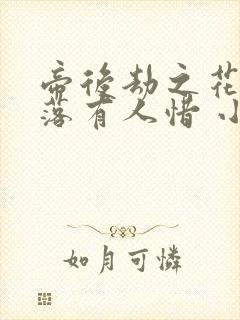 帝後劫之花
落有人惜 小
如月可憐